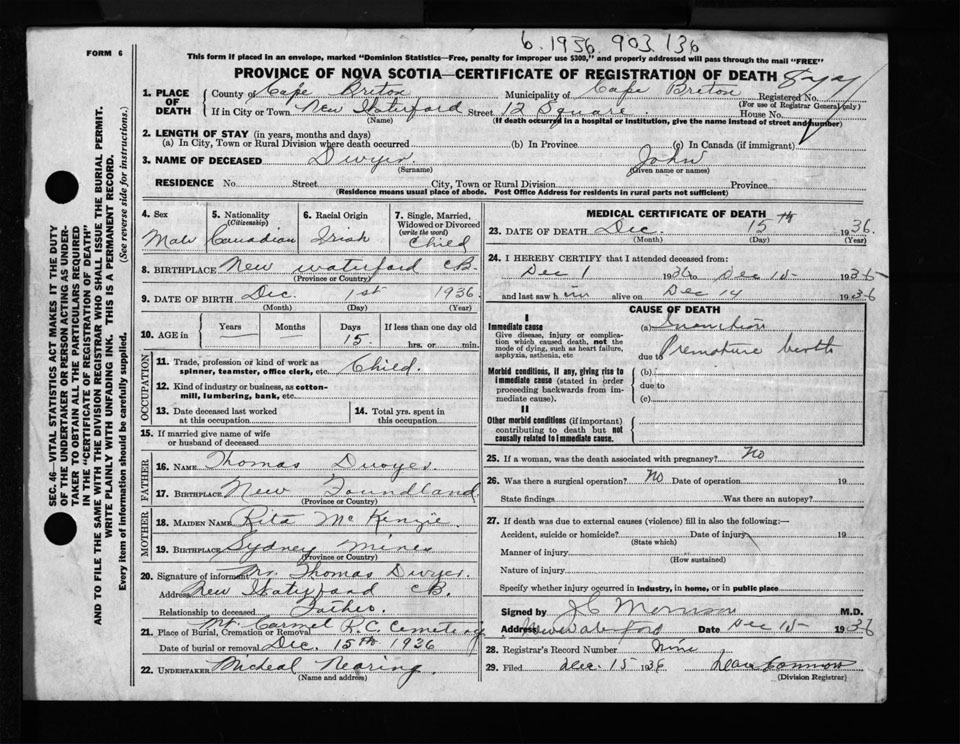 6.1936. 903.136
FORM 6
This form if placed in an envelope, marked "Dominion Statistics—Free, penalty for improper use $300," and properly addressed will pass through the mail "FREE"
PROVINCE OF NOVA SCOTIA—CERTIFICATE OF REGISTRATION OF DEATH
1. PLACE OF DEATH
County of Cape Breton Municipality of Cape Breton Registered No.
(For use of Registrar General only)
If in City or Town New Waterford Street 12 Square House No.
(Name) (If death occurred in a hospital or institution, give the name instead of street and number)
2. LENGTH OF STAY (in years, months and days)
(a) In City, Town or Rural Division where death occurred (b) In Province (c) In Canada (if immigrant)
3. NAME OF DECEASED Dwyer. John
(Surname) (Given name or names)
RESIDENCE No. Street City, Town or Rural Division Province
(Residence means usual place of abode. Post Office Address for residents in rural parts not sufficient)
SEC. 46—VITAL STATISTICS ACT MAKES IT THE DUTY
OF THE UNDERTAKER OR PERSON ACTING AS UNDER-
TAKER TO OBTAIN ALL THE PARTICULARS REQUIRED
IN THE "CERTIFICATE OF REGISTRATION OF DEATH"
AND TO FILE THE SAME WITH THE DIVISION REGISTRAR WHO SHALL ISSUE THE BURIAL PERMIT.
WRITE PLAINLY WITH UNFADING INK. THIS IS A PERMANENT RECORD.
Every item of information should be carefully supplied. (See reverse side for instructions.)
4. Sex
Male
5. Nationality
(Citizenship)
Canadian
6. Racial Origin
Irish
7. Single, Married,
Widowed or Divorced
(write the word)
Child
8. BIRTHPLACE New Waterford C.B.
(Province or Country)
9. DATE OF BIRTH Dec. 1st 1936.
(Month) (Day) (Year)
10. AGE in Years Months Days If less than one day old
15. hrs. or min.
OCCUPATION
11. Trade, profession or kind of work as
spinner, teamster, office clerk, etc. Child.
12. Kind of industry or business, as cotton-
mill, lumbering, bank, etc.
13. Date deceased last worked
at this occupation
14. Total yrs. spent in
this occupation
15. If married give name of wife
or husband of deceased
FATHER
16. NAME Thomas Dwyer.
17. BIRTHPLACE New Foundland
(Province or Country)
MOTHER
18. MAIDEN NAME Rita McKenzie.
19. BIRTHPLACE Sydney Mines
(Province or Country)
20. Signature of informant Mr. Thomas Dwyer.
Address New Waterford C.B.
Relationship to deceased Father.
21. Place of Burial, Cremation or Removal Mt Carmel R.C. Cemetery
Date of burial or removal Dec. 15th 1936
22. UNDERTAKER Micheal Nearing.
(Name and address)
MEDICAL CERTIFICATE OF DEATH
23. DATE OF DEATH Dec. 15th 1936
(Month) (Day) (Year)
24. I HEREBY CERTIFY that I attended deceased from:
Dec 1 1936 to Dec 15 1936
and last saw h im alive on Dec 14 1936
CAUSE OF DEATH
I
Immediate cause
Give disease, injury or complica-
tion which caused death, not the
mode of dying, such as heart failure,
asphyxia, asthenia, etc
(a) Inanition
due to Premature birth
Morbid conditions, if any, giving rise to
immediate cause (stated in order
proceeding backwards from im-
mediate cause).
(b)
due to
(c)
II
Other morbid conditions (if important)
contributing to death but not
causally related to immediate cause.
25. If a woman, was the death associated with pregnancy? No
26. Was there a surgical operation? No Date of operation 19
State findings Was there an autopsy?
27. If death was due to external causes (violence) fill in also the following:—
Accident, suicide or homicide? Date of injury 19
(State which)
Manner of injury
(How sustained)
Nature of injury
Specify whether injury occurred in industry, in home, or in public place
Signed by J C Morrison M.D.
Address New Waterford Date Dec 15 1936
28. Registrar's Record Number Nine
29. Filed Dec. 15 1936
(Division Registrar)